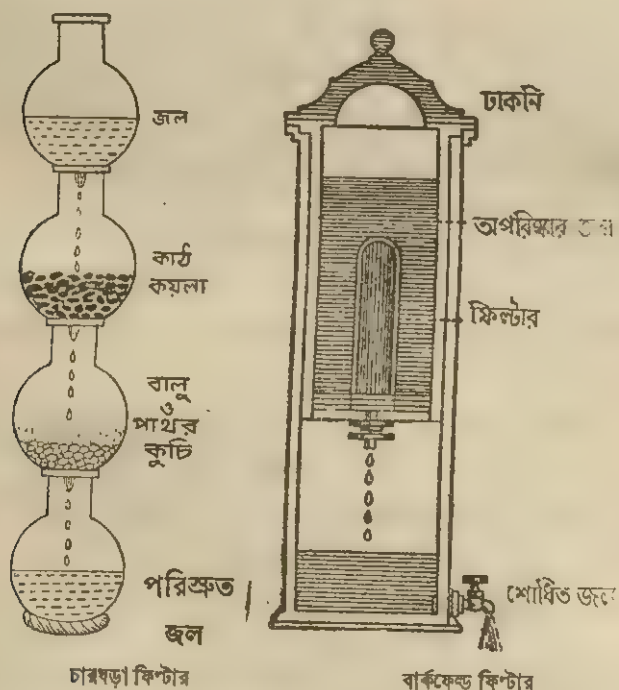 জল
কাঠ
কয়লা
বালু
ও
পাথর
কুচি
পরিস্রুত
জল
চারঘড়া ফিল্টার
ঢাকনি
অপরিষ্কার
ফিল্টার
শোধিত
বার্কফেল্ড ফিল্টার